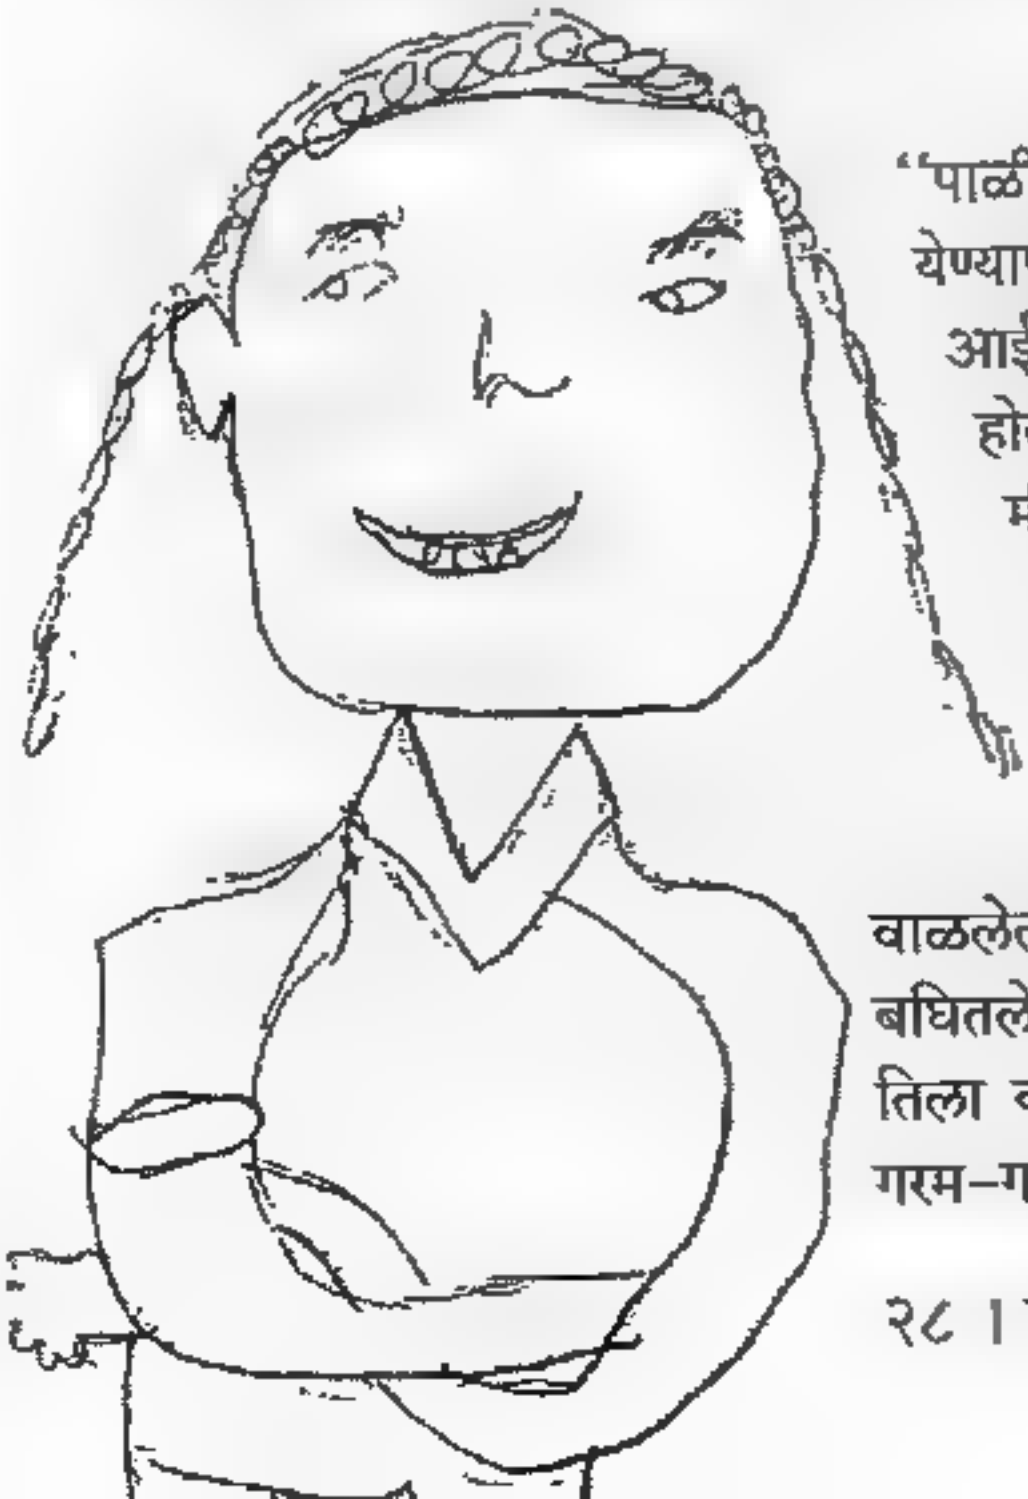 “पाळी
येण्याप
आई
होत
म
वाळलेल
बघितले
तिला व
गरम-ग
२८ ।